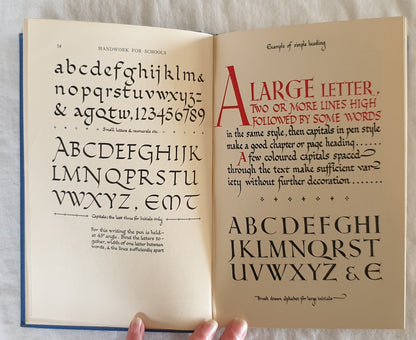 14 HANDWORK FOR SCHOOLS
abcdefghijklm&
nopqrstuvwxyz
& agqtw. 123456789
Small letters & numerals etc.
ABCDEFGHIJK
LMNOPQRSTU
VWXYZ, EMT
Capitals; the last three for Initials only
For this writing the pen is held
at 45° angle. Bind the letters to-
gether, width of one letter between
words, & the lines sufficiently apart
Example of simple heading
A LARGE LETTER,
TWO OR MORE LINES HIGH
FOLLOWED BY SOME WORDS
in the same style, then capitals in pen style
make a good chapter or page heading.....
A few coloured capitals spaced
through the text make sufficient var-
iety without further decoration........
ABCDEFGHI
JKLMNOPQRST
UVWXYZ & E
Brush drawn alphabet for large initials